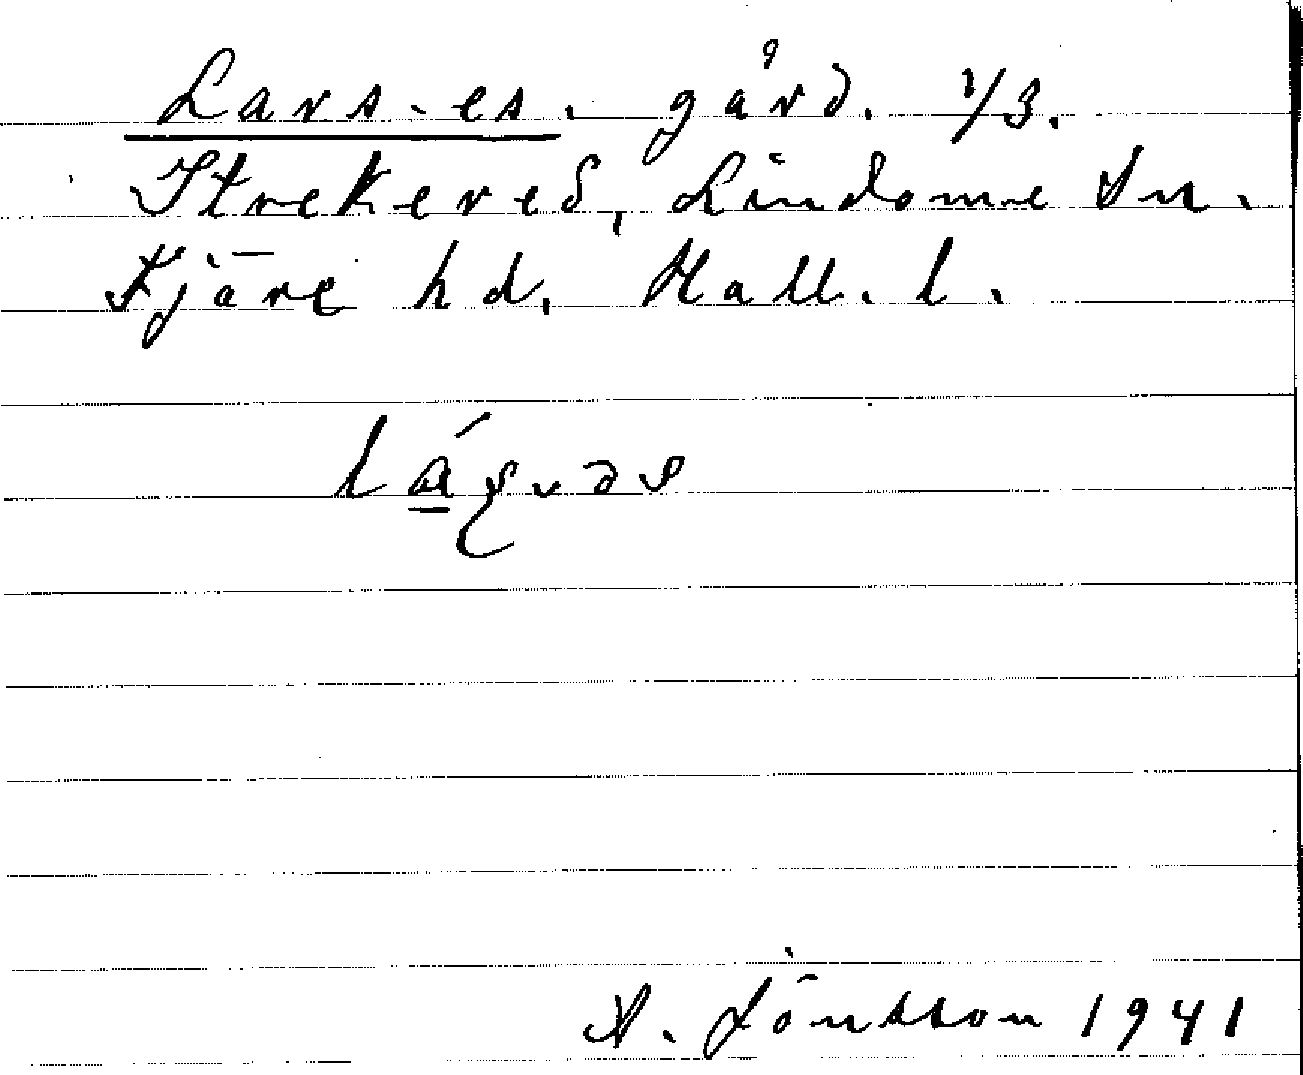 Lars-es. gård. 1/3.
Strekered, Lindome Sn.
Fjäre hd. Hall. l.
A. Jönsson 1941